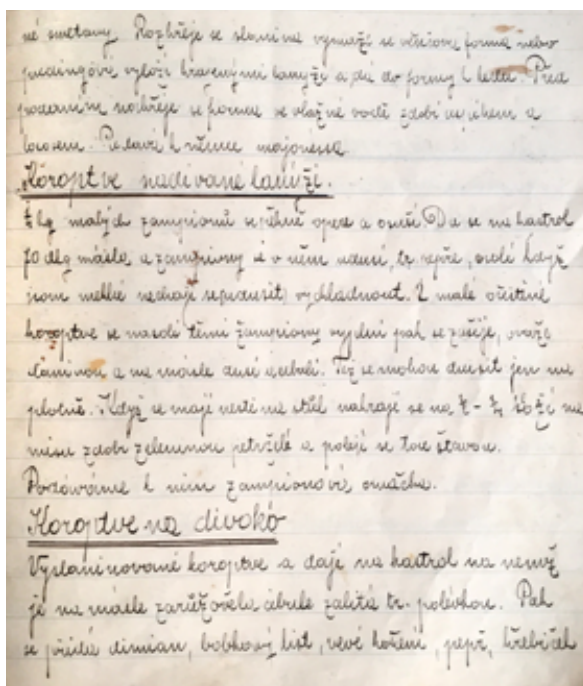 né smetany. Rozhřeje se slanina vymaží se forma nebo
pudingová vyloží krajenými lanýži a dá do formy k ledu. Před
podáním nahřeje se forma ve vlažné vodě zdobí aspikem a
lososem. Podává k němu majonesa
Koroptve nadívané lanýži.
kg malých žampionů se pěkně opere a osuší. Da se na kastrol
10 dkg másla, a žampiony se v něm udusí, tr. pepře, osolí když
jsou měkké nechají se vychladnout. 2 malé očistěné
koroptve se nasolí těmi žampiony vyplní pak se zašije, ováže
slaninou a na másle dusí s cibulí. Též se mohou dusit jen na
plotně. Když se mají nesti na stůl nakrájí se na
mísu zdobí zeleninou petrželí a polejí se tou šťavou.
Podáváme k ním žampionová omáčka.
Koroptve na divoko
Vyslaninované koroptve a dají na kastrol na nemž
je na másle zarůžovělá cibule zalitá tr. polévkou. Pak
se přidá dimian, bobkový list, nové koření, pepř, hřebíček